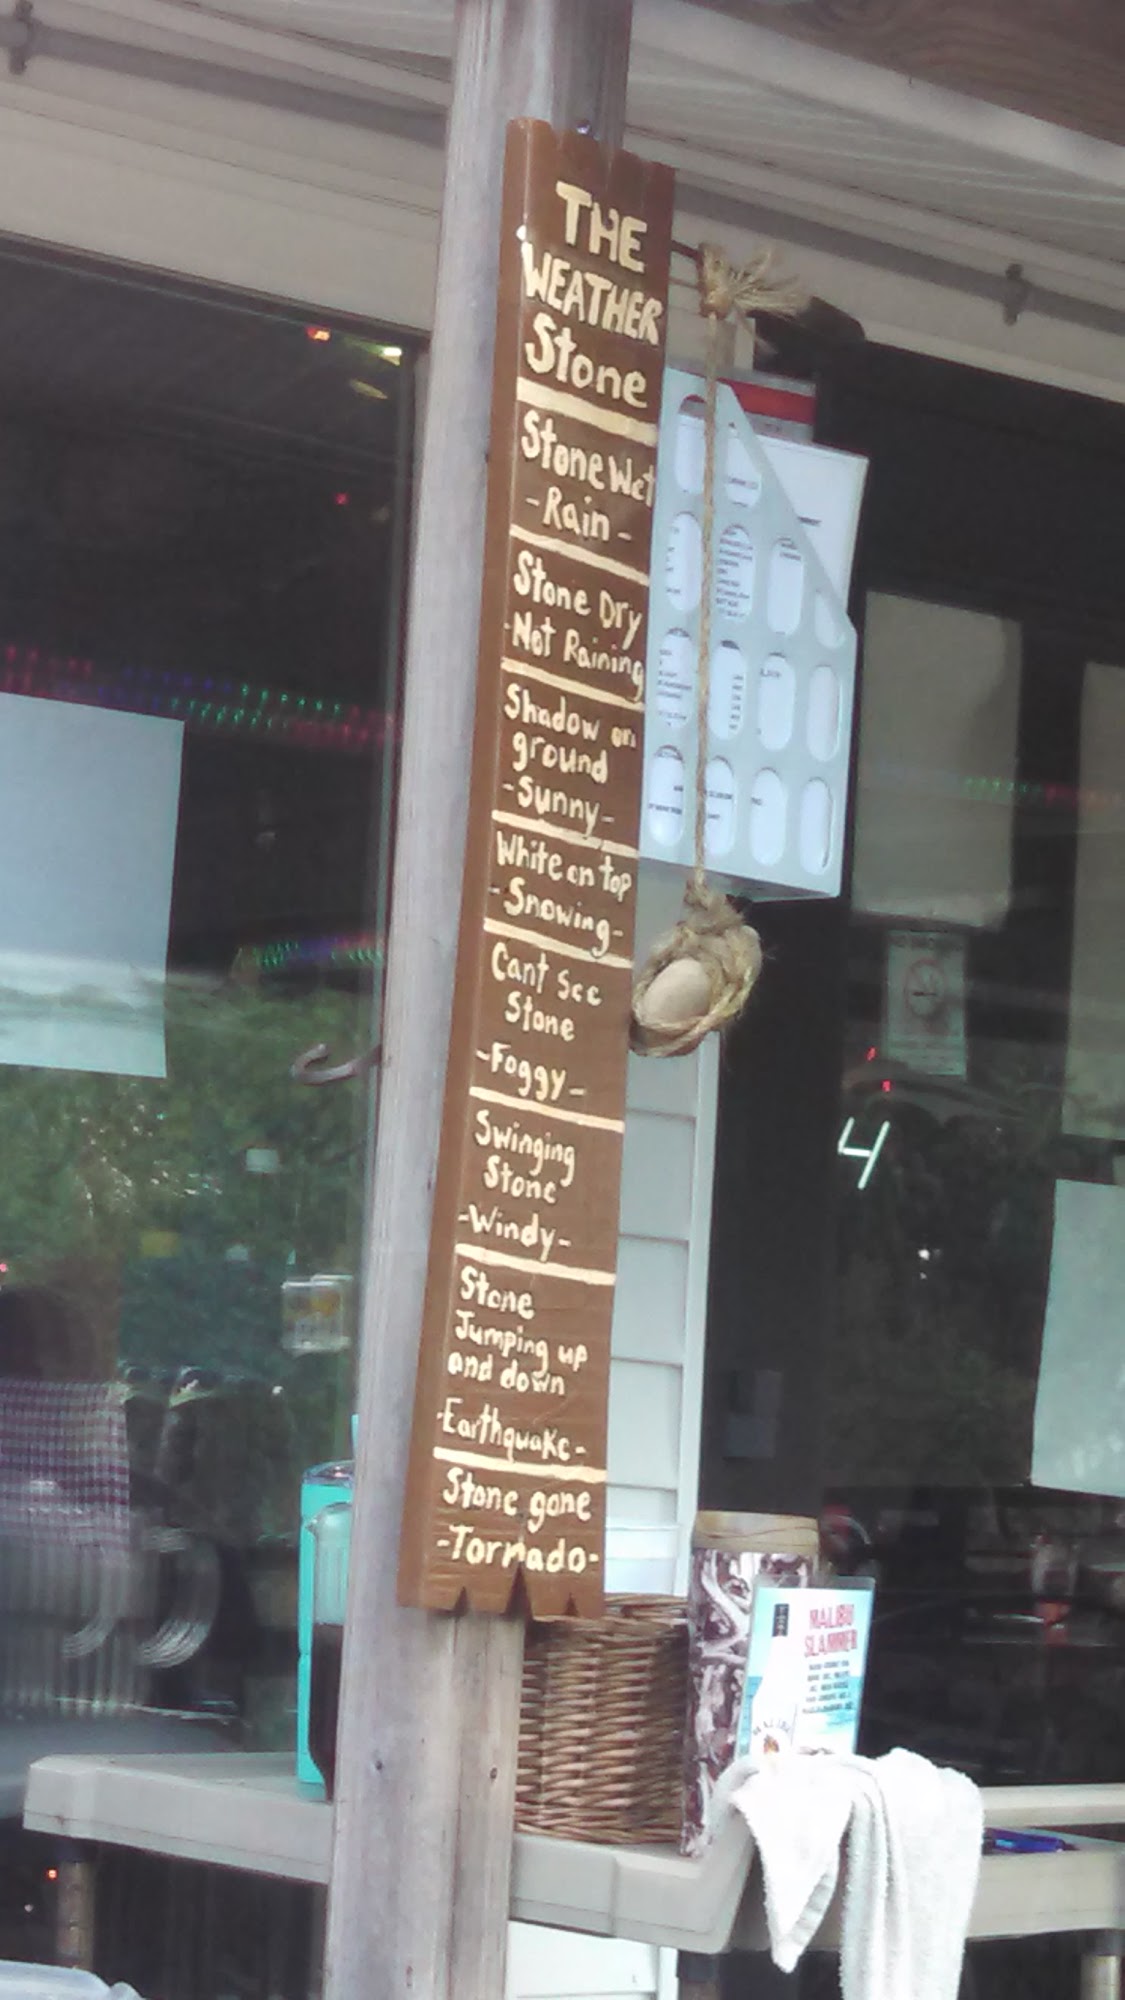 THE
WEATHER
Stone
Stone Wet
-Rain-
Stone Dry
-Not Raining
Shadow on
ground
-Sunny-
White on top
-Snowing-
Cant See
Stone
-Foggy-
Swinging
Stone
-Windy-
Stone
Jumping up
and down
-Earthquake-
Stone gone
-Tornado-
4
MALIBU
SLAMMER